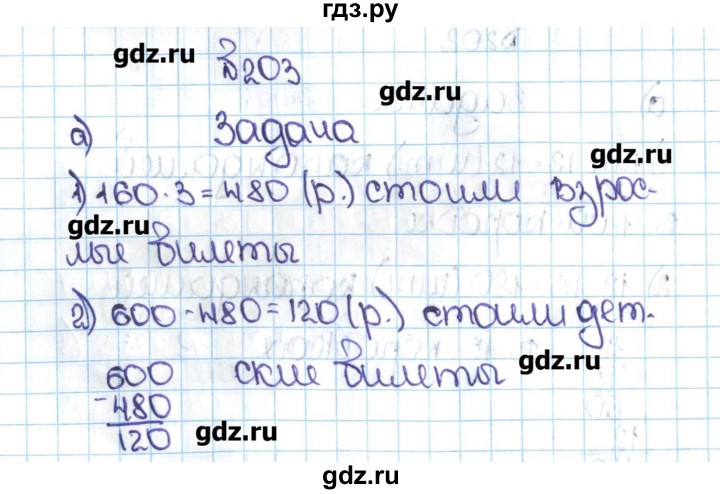 гдз.ру
gdz.ru
№203
gdz.ru
а) Задача
gdz.ru
1) 160·3=480 (р.) стоили взрос-
gdz.ru
лые билеты
2) 600-480=120 (р.) стоили дет-
600 ские билеты gdz.ru
-480
120 gdz.ru
gdz.ru